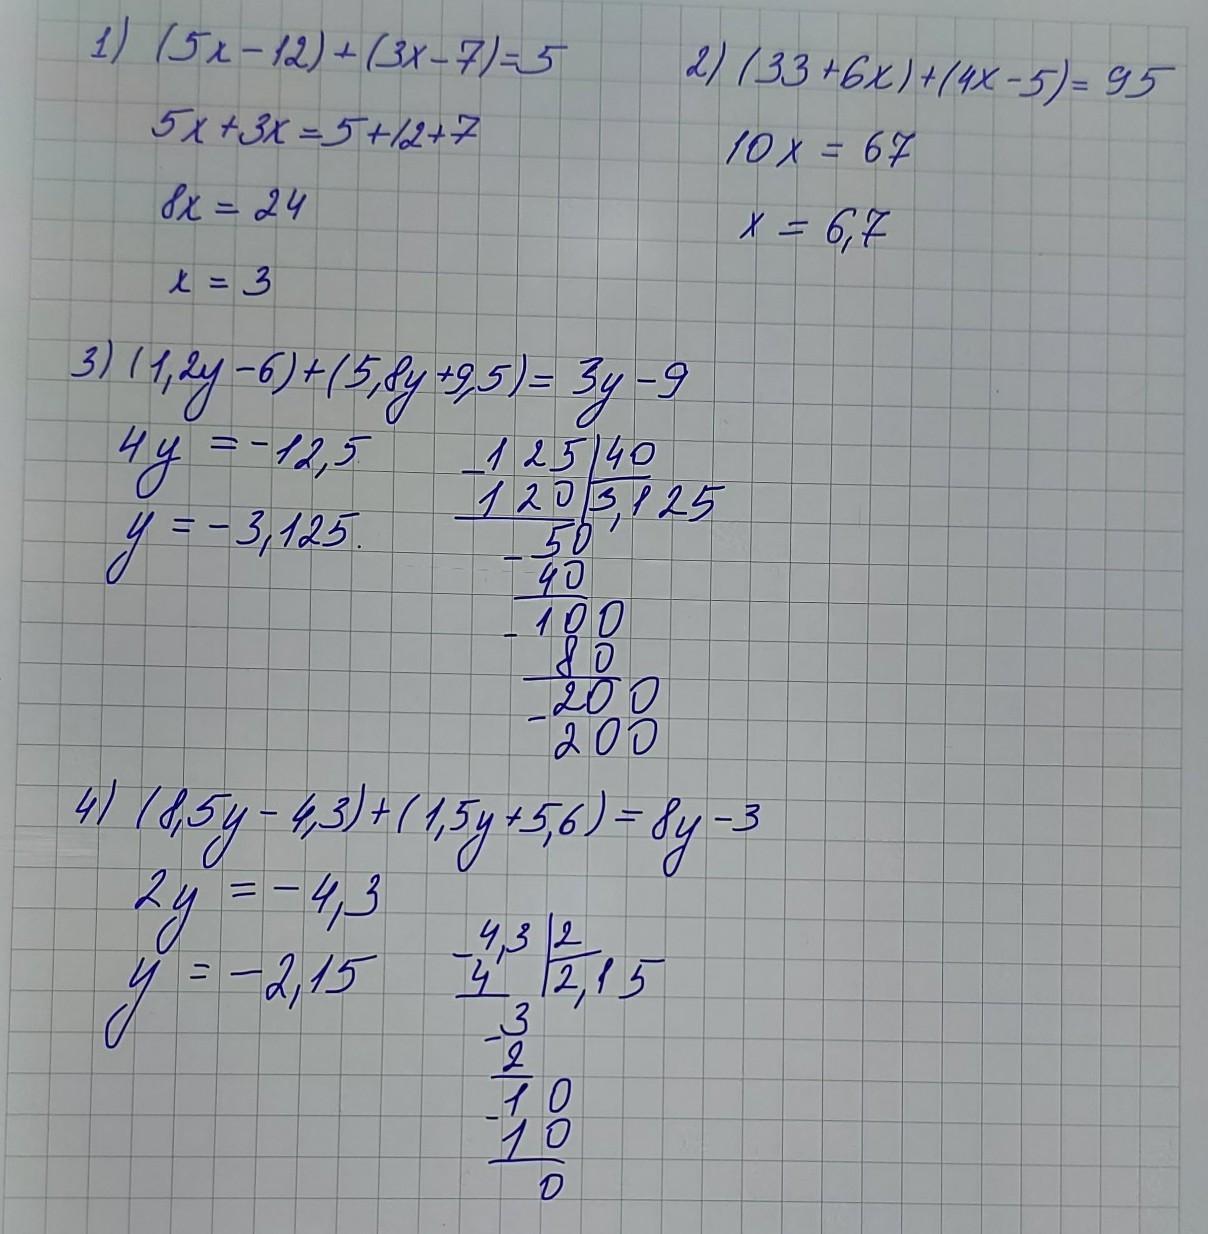 1) (5x-12)+(3x-7)=5
5x+3x=5+12+7
8x = 24
x = 3
2) (33+6x)+(4x-5)=95
10x = 67
x = 6,7
3) (1,2y-6)+(5,8y+9,5)= 3y-9
4y = -12,5
y = -3,125.
-125|40
120|3,125
-50
40
-100
80
-200
200
4) (8,5y-4,3)+(1,5y+5,6)= 8y-3
2y = -4,3
y = -2,15
-4,3|2
4|2,15
-3
2
-10
10
0